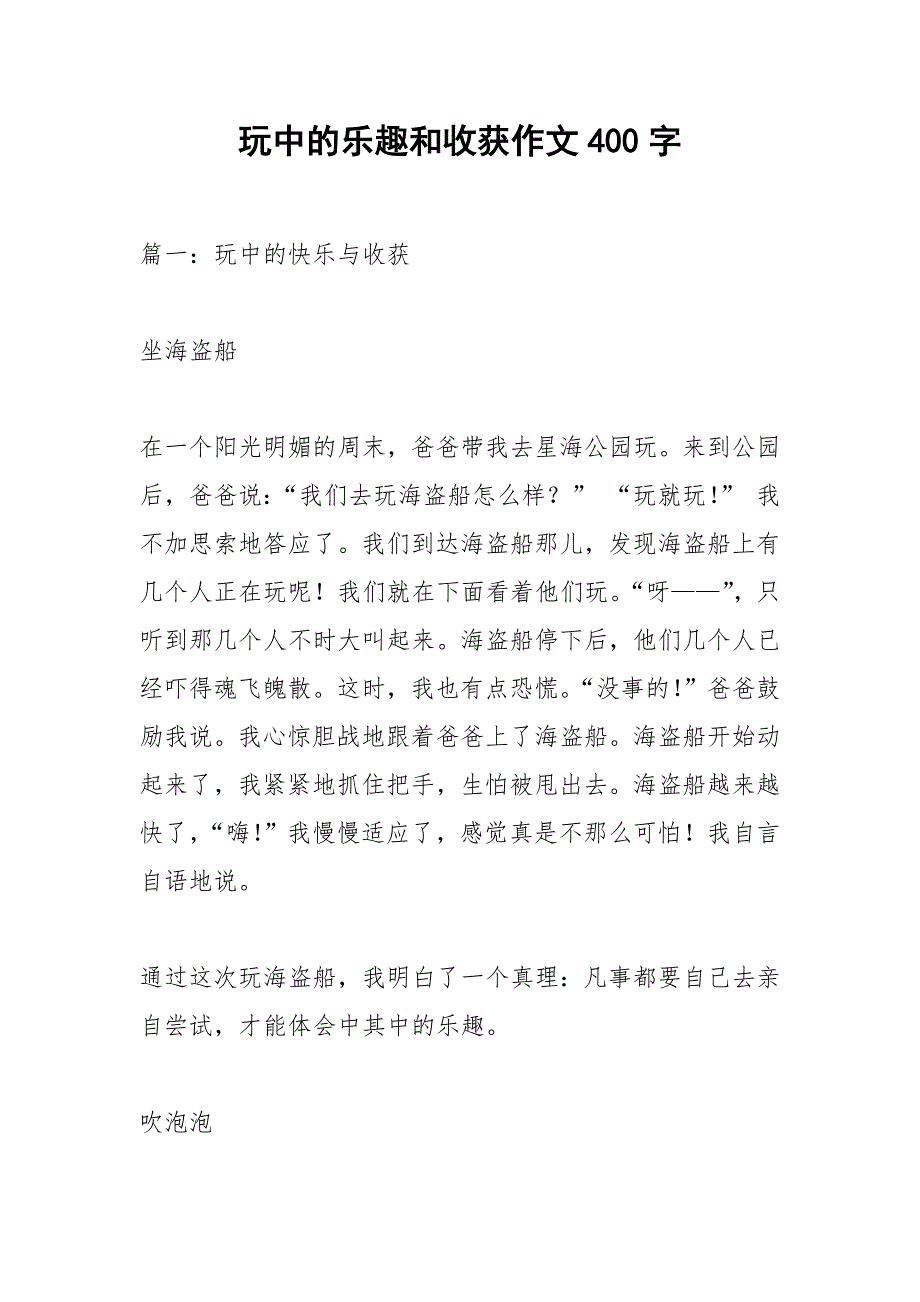 玩中的乐趣和收获作文 400 字
篇一：玩中的快乐与收获
坐海盗船
在一个阳光明媚的周末，爸爸带我去星海公园玩。来到公园
后，爸爸说：“我们去玩海盗船怎么样？” “玩就玩！” 我
不加思索地答应了。我们到达海盗船那儿，发现海盗船上有
几个人正在玩呢！我们就在下面看着他们玩。“呀——”，只
听到那几个人不时大叫起来。海盗船停下后，他们几个人已
经吓得魂飞魄散。这时，我也有点恐慌。“没事的！”爸爸鼓
励我说。我心惊胆战地跟着爸爸上了海盗船。海盗船开始动
起来了，我紧紧地抓住把手，生怕被甩出去。海盗船越来越
快了，“嗨！”我慢慢适应了，感觉真是不那么可怕！我自言
自语地说。
通过这次玩海盗船，我明白了一个真理：凡事都要自己去亲
自尝试，才能体会中其中的乐趣。
吹泡泡